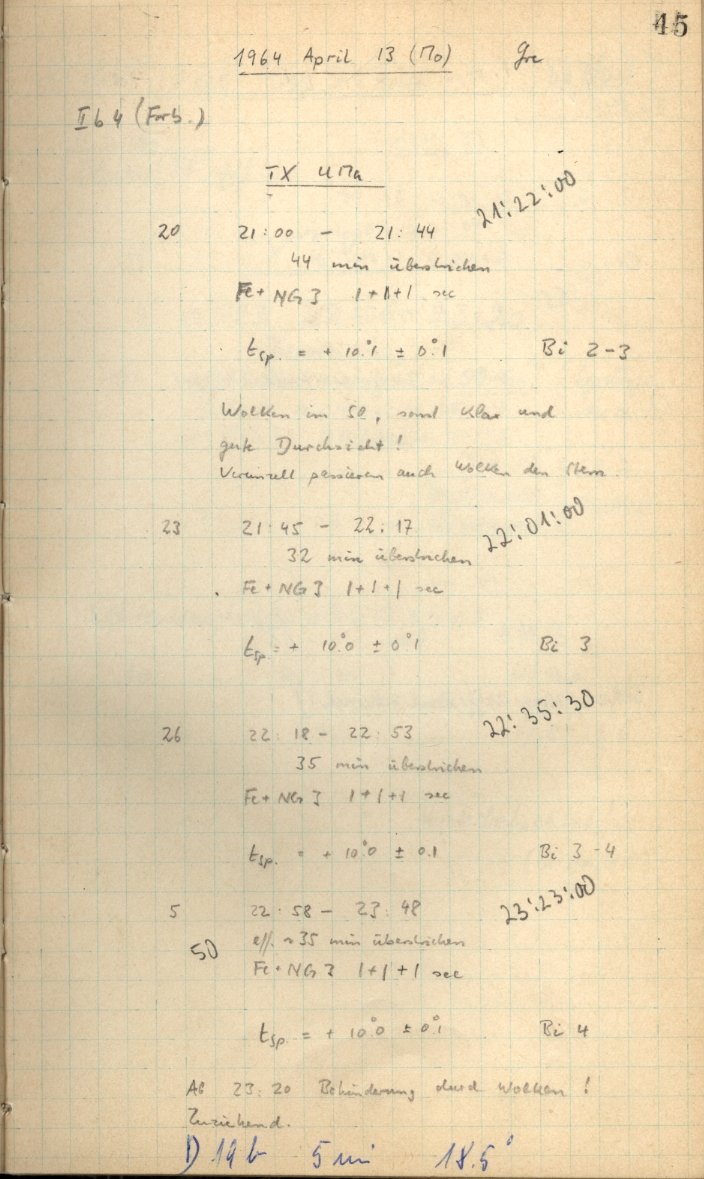 45
1964 April 13 (Mo) Gre
I b 4 (Forb.)
TX UMa
21:22:00
20 21:00 - 21:44
44 min überstrichen
Fe + NG 3 1+1+1 sec
tsp. = + 10°.1 ± 0°.1 Bi 2-3
Wolken im SE, sonst klar und
gute Durchsicht!
Vereinzelt passieren auch Wolken den Stern.
23 21:45 - 22:17 22:01:00
32 min überstrichen
Fe + NG 3 1+1+1 sec
tsp = + 10°.0 ± 0°.1 Bi 3
26 22:18 - 22:53 22:35:30
35 min überstrichen
Fe + NG 3 1+1+1 sec
tsp. = + 10°.0 ± 0.1 Bi 3-4
5 22:58 - 23:48 23:23:00
50 eff. ≈ 35 min überstrichen
Fe + NG 3 1+1+1 sec
tsp = + 10°.0 ± 0°.1 Bi 4
Ab 23:20 Behinderung durch Wolken!
Zuziehend.
D 19 b 5 min 18.5°